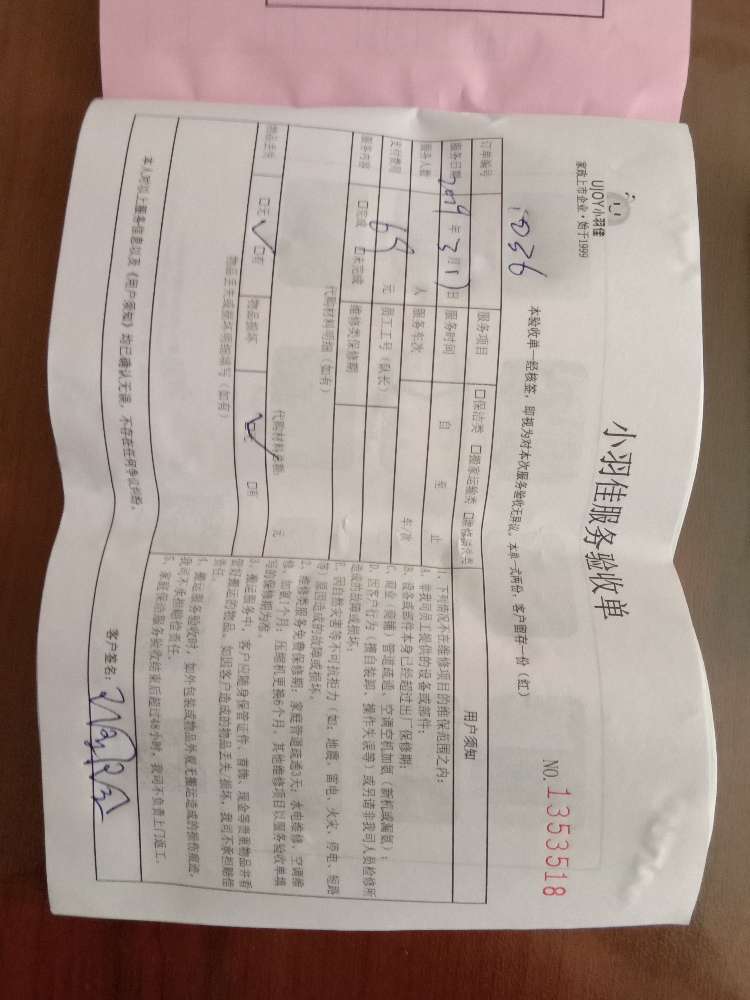 UJOY小羽佳
家政上市企业·始于1999
小羽佳服务验收单
NO.1353518
本验收单一经核签，即视为对本次服务验收无异议。本单一式两份：客户留存一份（红）
订单编号
服务项目 □保洁类 □搬家运输类 □维修清洗类
服务日期 年3月1日 服务时间 自 至 止
服务人数 人 服务车次 车/次
支付费用 69 元 员工工号（队长）
服务内容 □完成 □未完成 维修类保修期
代购材料明细（如有）
代购材料总额: 元
物品丢失 □无 □有 物品损坏 □有
物品丢失或损坏明细填写（如有）
用户须知
1、下列情况不在维修项目的维保范围之内：
A、非我司员工提供的设备或部件；
B、设备或部件本身已经超过出厂保修期；
C、商业（商铺）管道疏通、空调空机加氨（新机或漏氨）；
D、因客户行为（擅自装卸、操作失误等）或另请非我司人员检修所
造成的故障或损坏；
E、因自然灾害等不可抗拒力（如：地震、雷电、火灾、停电、短路
等）原因造成的故障或损坏。
2、维修类服务免费保修期：家庭管道疏通3天；水电维修、空调维
修、加氨1个月；压缩机更换6个月，其他维修项目以服务验收单填
写的保修期为准。
3、搬运服务中，客户应随身保管证件、首饰、现金等贵重物品并看
管好搬运的物品。如因客户造成的物品丢失/损坏，我司不承担赔偿
责任。
4、搬运服务验收时，如外包装或物品外观无搬运造成的损伤痕迹，
我司不承担赔偿责任。
5、家庭保洁服务验收结束后超过48小时，我司不负责上门返工。
本人对以上服务信息以及《用户须知》均已确认无误，不存在任何争议纠纷。
客户签名：